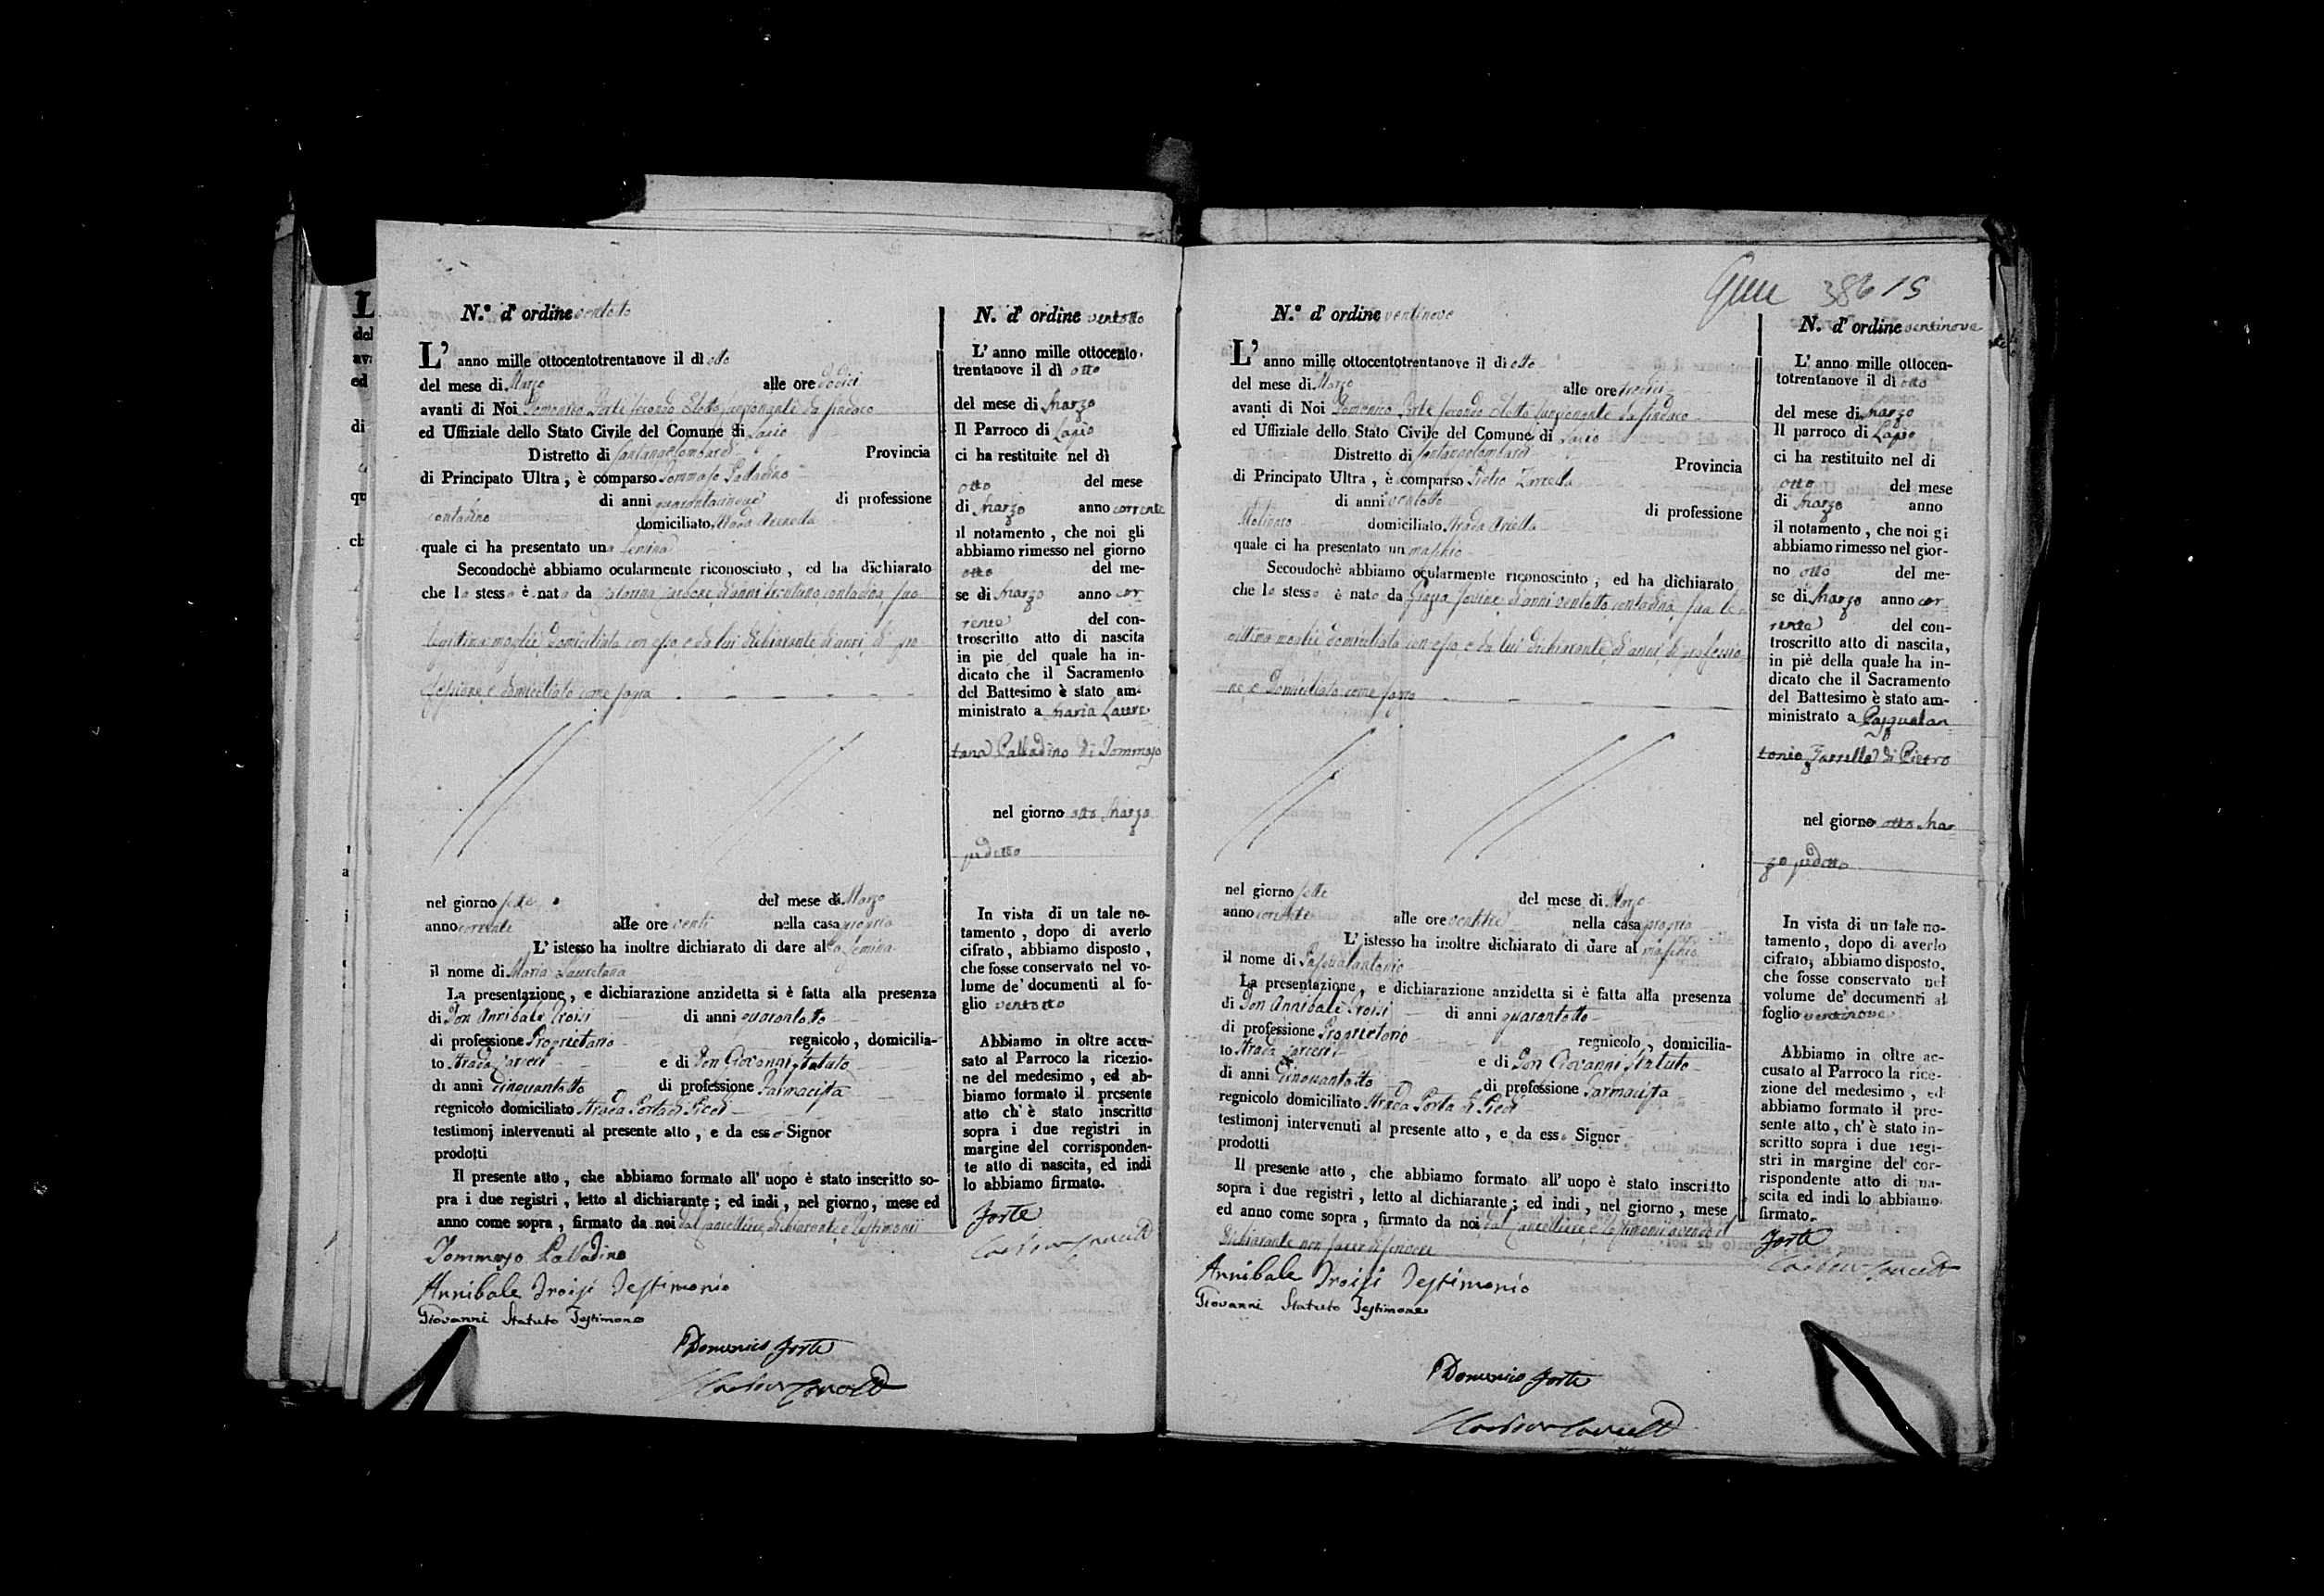 N.º d' ordine ventotto
L' anno mille ottocentotrentanove il dì otto
del mese di Marzo alle ore dodici
avanti di Noi Domenico Forte secondo Eletto funzionante da sindaco
ed Uffiziale dello Stato Civile del Comune di Lapio
Distretto di Santangelombardi Provincia
di Principato Ultra, è comparso Tommaso Palladino
di anni quarantacinque di professione
contadino domiciliato strada
quale ci ha presentato una femina
Secondochè abbiamo ocularmente riconosciuto, ed ha dichiarato
che la stessa è nata da Carbone di anni trentuno contadina sua
legittima moglie domiciliata con esso e da lui dichiarante di anni, di pro
fessione e domiciliato come sopra
nel giorno sette del mese di Marzo
anno corrente alle ore venti nella casa propria
L' istesso ha inoltre dichiarato di dare alla femina
il nome di Maria Lauretana
La presentazione, e dichiarazione anzidetta si è fatta alla presenza
di Don Annibale Troisi di anni quarantotto
di professione Proprietario regnicolo, domicilia-
to strada Carceri e di Don Giovanni Statuto
di anni cinquantotto di professione Farmacista
regnicolo domiciliato strada Porta di Piedi
testimonj intervenuti al presente atto, e da esso Signor
prodotti
Il presente atto, che abbiamo formato all' uopo è stato inscritto so-
pra i due registri, letto al dichiarante; ed indi, nel giorno, mese ed
anno come sopra, firmato da noi dal cancelliere, dichiarante, e testimonii
Tommaso Palladino
Annibale Troisi Testimonio
Giovanni Statuto Testimone
Domenico Forte
N. d' ordine ventotto
L' anno mille ottocento-
trentanove il dì otto
del mese di Marzo
Il Parroco di Lapio
ci ha restituite nel dì
otto del mese
di Marzo anno corrente
il notamento, che noi gli
abbiamo rimesso nel giorno
otto del me-
se di Marzo anno cor-
rente del con-
troscritto atto di nascita
in pie del quale ha in-
dicato che il Sacramento
del Battesimo è stato am-
ministrato a Maria Laure
tana Palladino di Tommaso
nel giorno otto Marzo
pdetto
In vista di un tale no-
tamento, dopo di averlo
cifrato, abbiamo disposto,
che fosse conservato nel vo-
lume de' documenti al fo-
glio ventotto
Abbiamo in oltre accu-
sato al Parroco la ricezio-
ne del medesimo, ed ab-
biamo formato il presente
atto ch' è stato inscritto
sopra i due registri in
margine del corrisponden-
te atto di nascita, ed indi
lo abbiamo firmato.
Forte
386 15
N.º d' ordine ventinove
L' anno mille ottocentotrentanove il dì otto
del mese di Marzo alle ore tredici
avanti di Noi Domenico Forte secondo eletto funzionante da sindaco
ed Uffiziale dello Stato Civile del Comune di Lapio
Distretto di Santangelombardi Provincia
di Principato Ultra, è comparso Pietro Zarrella
di anni ventotto di professione
Molinaro domiciliato strada Ariella
quale ci ha presentato un maschio
Secondochè abbiamo ocularmente riconosciuto, ed ha dichiarato
che lo stesso è nato da Grazia Iovine di anni ventotto contadina sua le-
gittima moglie domiciliata con esso e da lui dichiarante di anni, di professio
ne, e domiciliato come sopra
nel giorno sette del mese di Marzo
anno corrente alle ore ventitre nella casa propria
L' istesso ha inoltre dichiarato di dare al maschio
il nome di Pasqualantonio
La presentazione, e dichiarazione anzidetta si è fatta alla presenza
di Don Annibale Troisi di anni quarantotto
di professione Proprietario regnicolo, domicilia-
to strada Carceri e di Don Giovanni Statuto
di anni cinquantotto di professione Farmacista
regnicolo domiciliato strada Porta di Piedi
testimonj intervenuti al presente atto, e da esso Signor
prodotti
Il presente atto, che abbiamo formato all' uopo è stato inscritto
sopra i due registri, letto al dichiarante; ed indi, nel giorno, mese
ed anno come sopra, firmato da noi dal Cancelliere, e testimonii avendo il
dichiarante non saper di scrivere
Annibale Troisi Testimonio
Giovanni Statuto Testimone
Domenico Forte
N. d' ordine ventinove
L' anno mille ottocen-
totrentanove il dì otto
del mese di Marzo
Il parroco di Lapio
ci ha restituito nel di
otto del mese
di Marzo anno
il notamento, che noi gi
abbiamo rimesso nel gior-
no otto del me-
se di Marzo anno cor-
rente del con-
troscritto atto di nascita,
in piè della quale ha in-
dicato che il Sacramento
del Battesimo è stato am-
ministrato a Pasqualan
tonio Zarrella di Pietro
nel giorno otto Mar
zo pdetto
In vista di un tale no-
tamento, dopo di averlo
cifrato, abbiamo disposto,
che fosse conservato nel
volume de' documenti al
foglio ventinove
Abbiamo in oltre ac-
cusato al Parroco la rice-
zione del medesimo, ed
abbiamo formato il pre-
sente atto, ch' è stato in-
scritto sopra i due regi-
stri in margine del cor-
rispondente atto di na-
scita ed indi lo abbiamo
firmato.
Forte